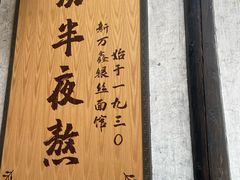 始于一九三〇
新万鑫银丝面馆
半夜熬